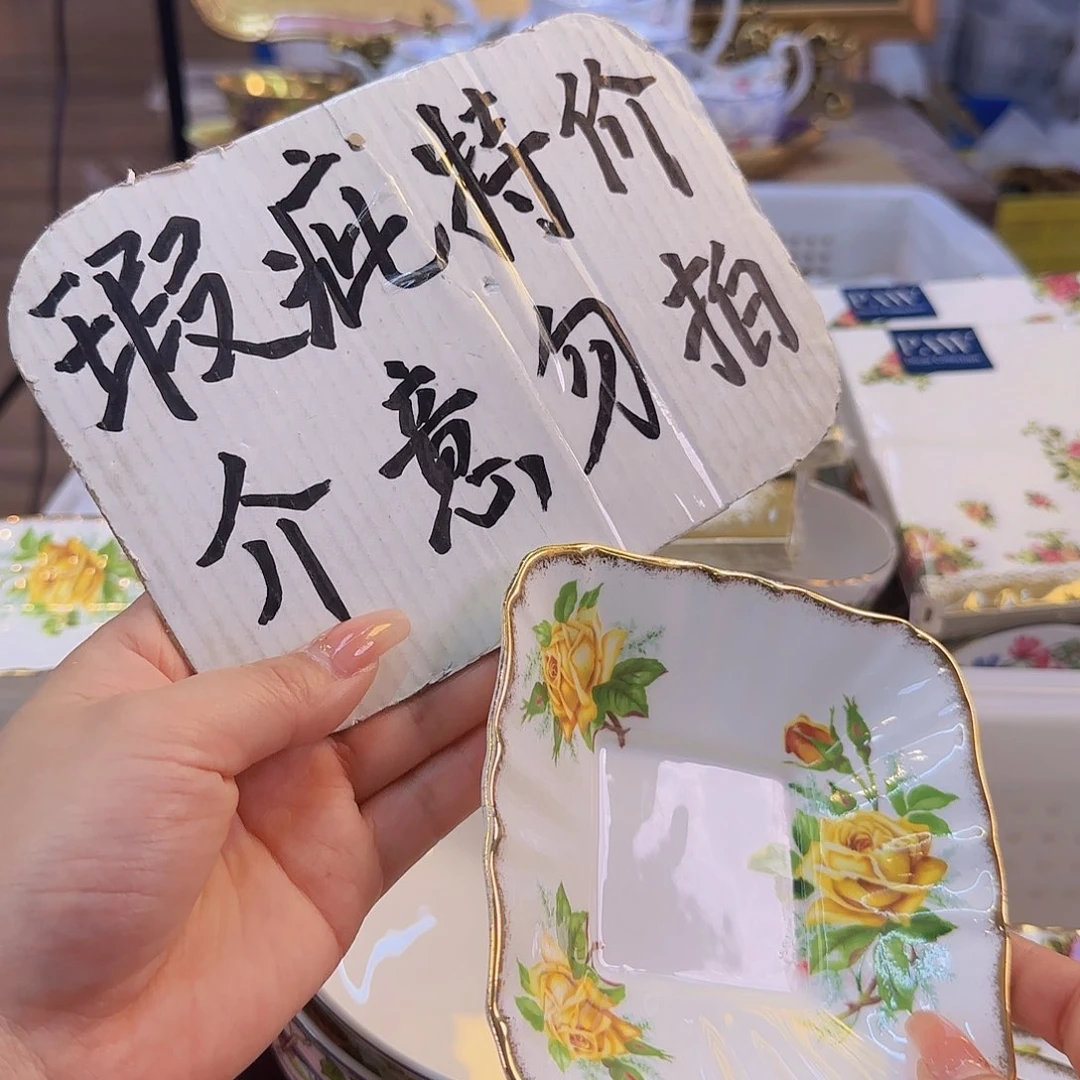 瑕疵特价
介意勿拍